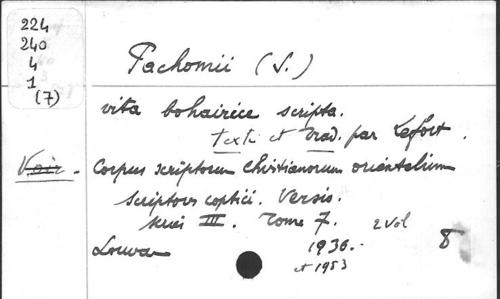 224
240
4
1
(7)
Pachomii (S.)
vita bohairice scripta.
texte et trad. par Lefort.
Voir.
Corpus scriptorum christianorum orientalium
Scriptores coptici. Versio.
series III. Tome 7. 2 Vol
Louvain 1936. 8°
et 1953